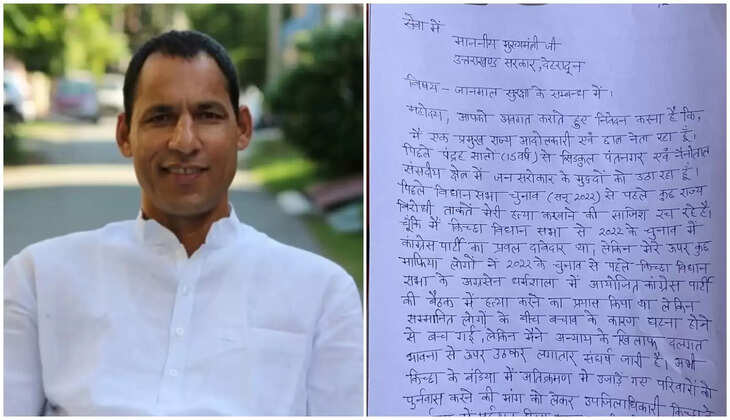 सेवा में
माननीय मुख्यमंत्री जी
उत्तराखण्ड सरकार, देहरादून
विषय - जानमाल सुरक्षा के सम्बन्ध में।
महोदय, आपको अवगत कराते हुए निवेदन करना है कि,
मैं एक प्रमुख राज्य आंदोलकारी एवं छात्र नेता रहा हूँ।
पिछले पंद्रह सालो (15 वर्ष) से सिडकुल पंतनगर एवं नैनीताल
संसदीय क्षेत्र में जन सरोकार के मुद्दों को उठा रहा हूँ।
पिछले विधान सभा चुनाव (सन् 2022) से पहले कुछ राज्य
विरोधी ताकतें मेरी हत्या करवाने की साजिश रच रहे हैं।
चूंकि मैं किच्छा विधान सभा से 2022 के चुनाव में
कांग्रेस पार्टी का प्रबल दावेदार था, लेकिन मेरे ऊपर कुछ
माफिया लोगों ने 2022 के चुनाव से पहले किच्छा विधान
सभा के अग्रसेन धर्मशाला में आयोजित कांग्रेस पार्टी
की बैठक में हत्या करने का प्रयास किया था लेकिन
सम्मानित लोगों के बीच बचाव के कारण घटना होने
से बच गई, लेकिन मैंने अन्याय के खिलाफ दलगत
भावना से ऊपर उठकर लगातार संघर्ष जारी है। अभी
किच्छा के बंडिया में अतिक्रमण में उजाड़े गए परिवारों को
पुनर्वास करने की मांग को लेकर उपजिलाधिकारी किच्छा